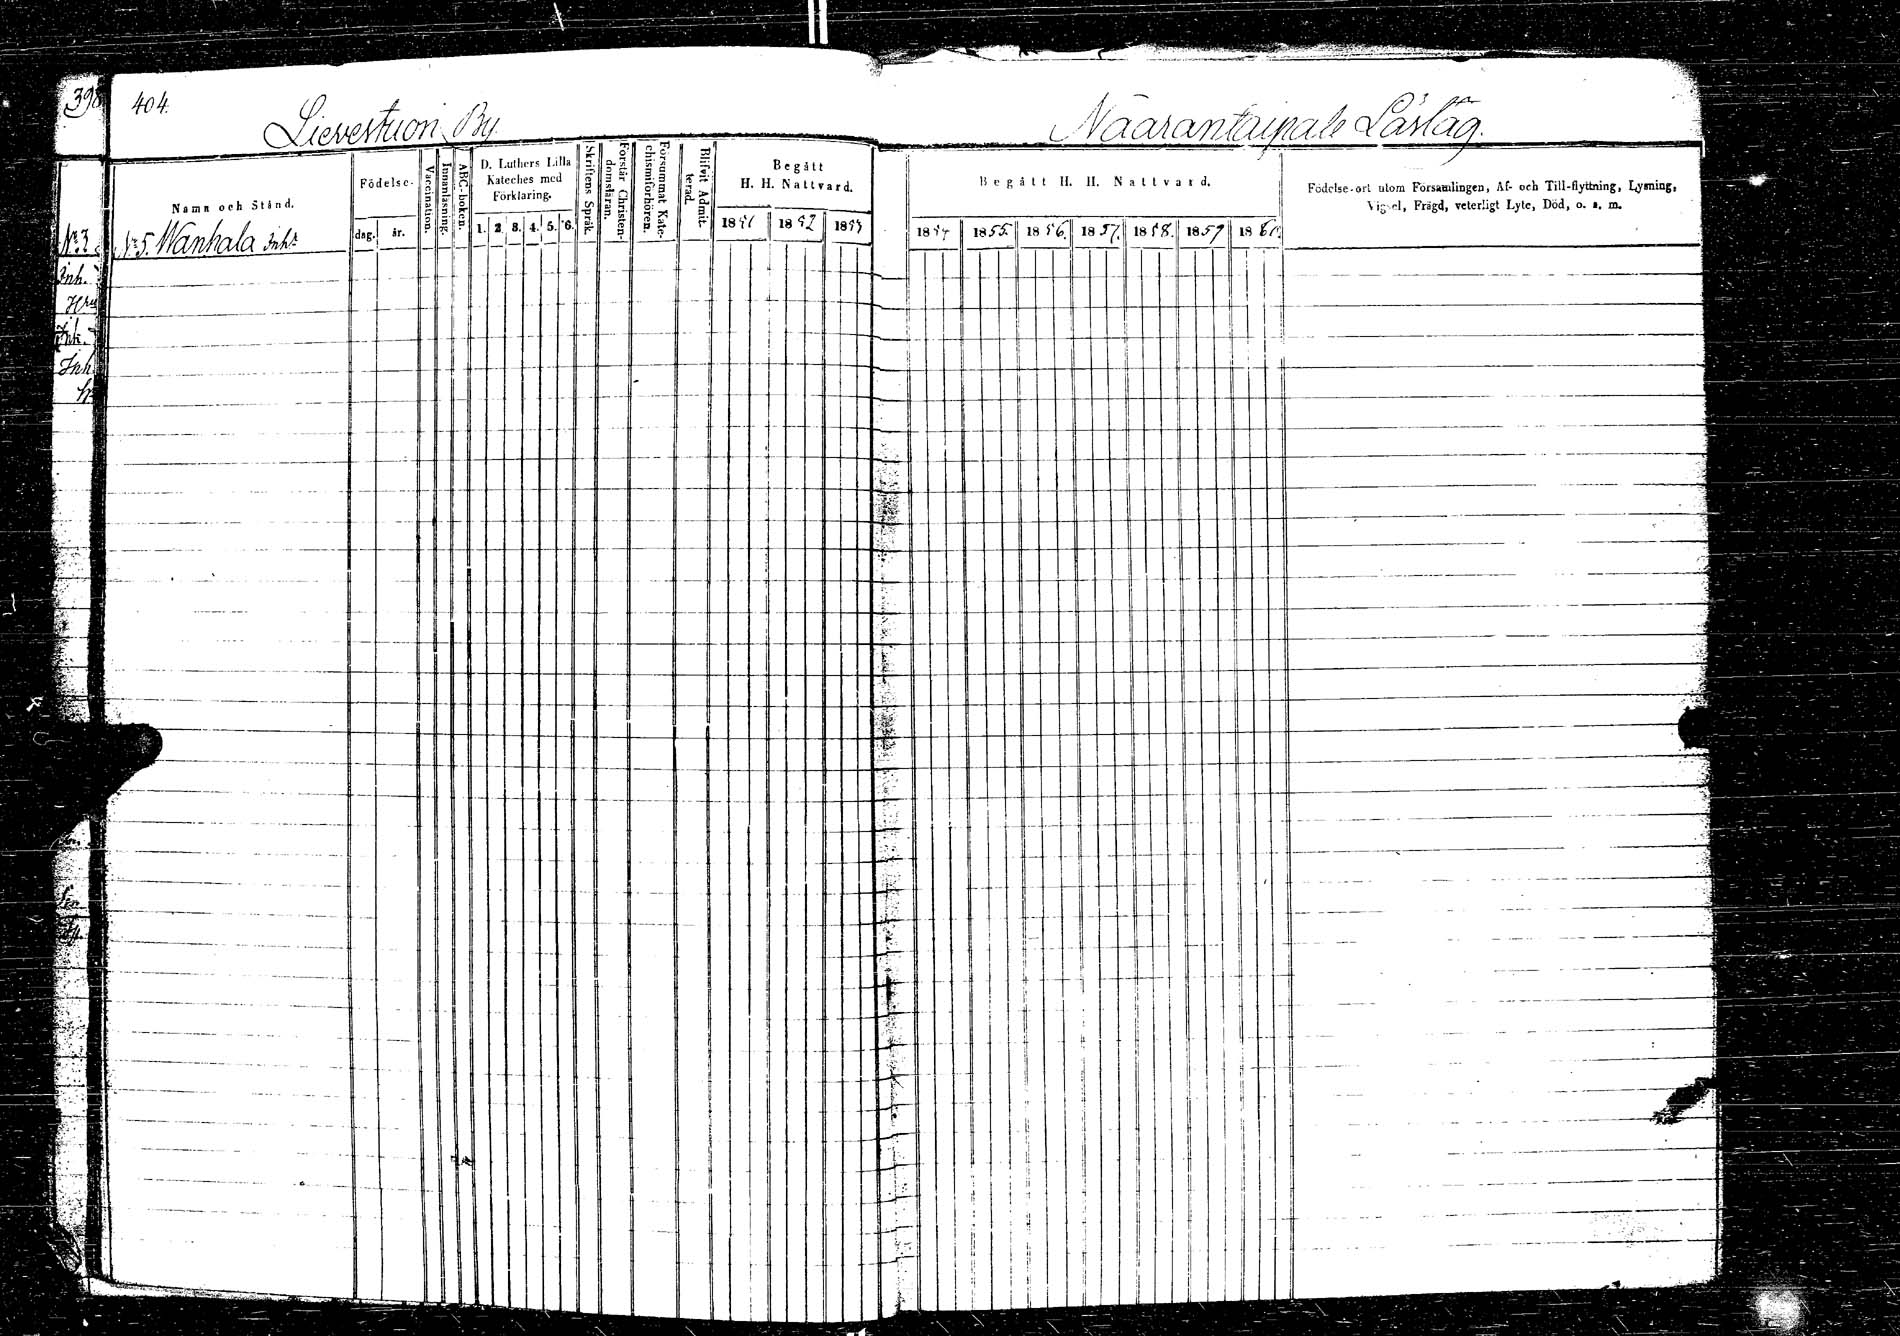 398
404.
Lievestuon By.
Näärantaipale Läslag.
Namn och Stånd.
Födelse-
dag. år.
Vaccination.
Innanläsning.
ABC-boken.
D. Luthers Lilla
Kateches med
Förklaring.
1. 2. 3. 4. 5. 6.
Skriftens Språk.
Förstår Christen-
domsläran.
Försummat Kate-
chismiförhören.
Blifvit Admit-
terad.
Begått
H. H. Nattvard.
1851 1852 1853
Begått H. H. Nattvard.
1854 1855. 1856. 1857. 1858. 1859 1860.
Födelse-ort utom Församlingen, Af- och Till-flyttning, Lysning,
Vigsel, Frägd, veterligt Lyte, Död, o. s. m.
No 3
No 5. Wanhala Inh:r
Inh.
Inh.
Inh